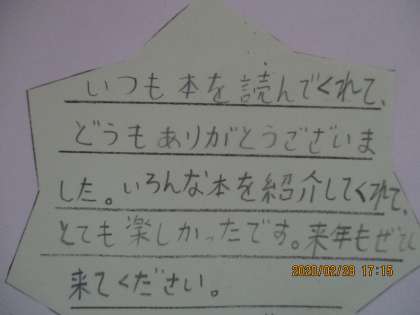 いつも本を読んでくれて、
どうもありがとうございま
した。いろんな本を紹介してくれて、
とても楽しかったです。来年もぜひ
来てください。
2020/02/28 17:15